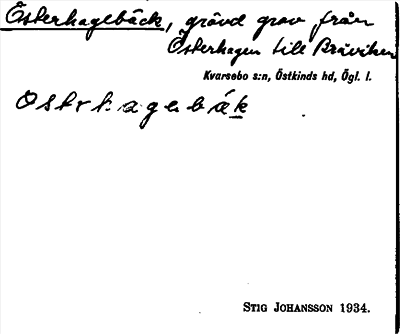 Österhagebäck, grävd grav från
Österhagen till Bråviken
Kvarsebo s:n, Östkinds hd, Ögl. l.
STIG JOHANSSON 1934.